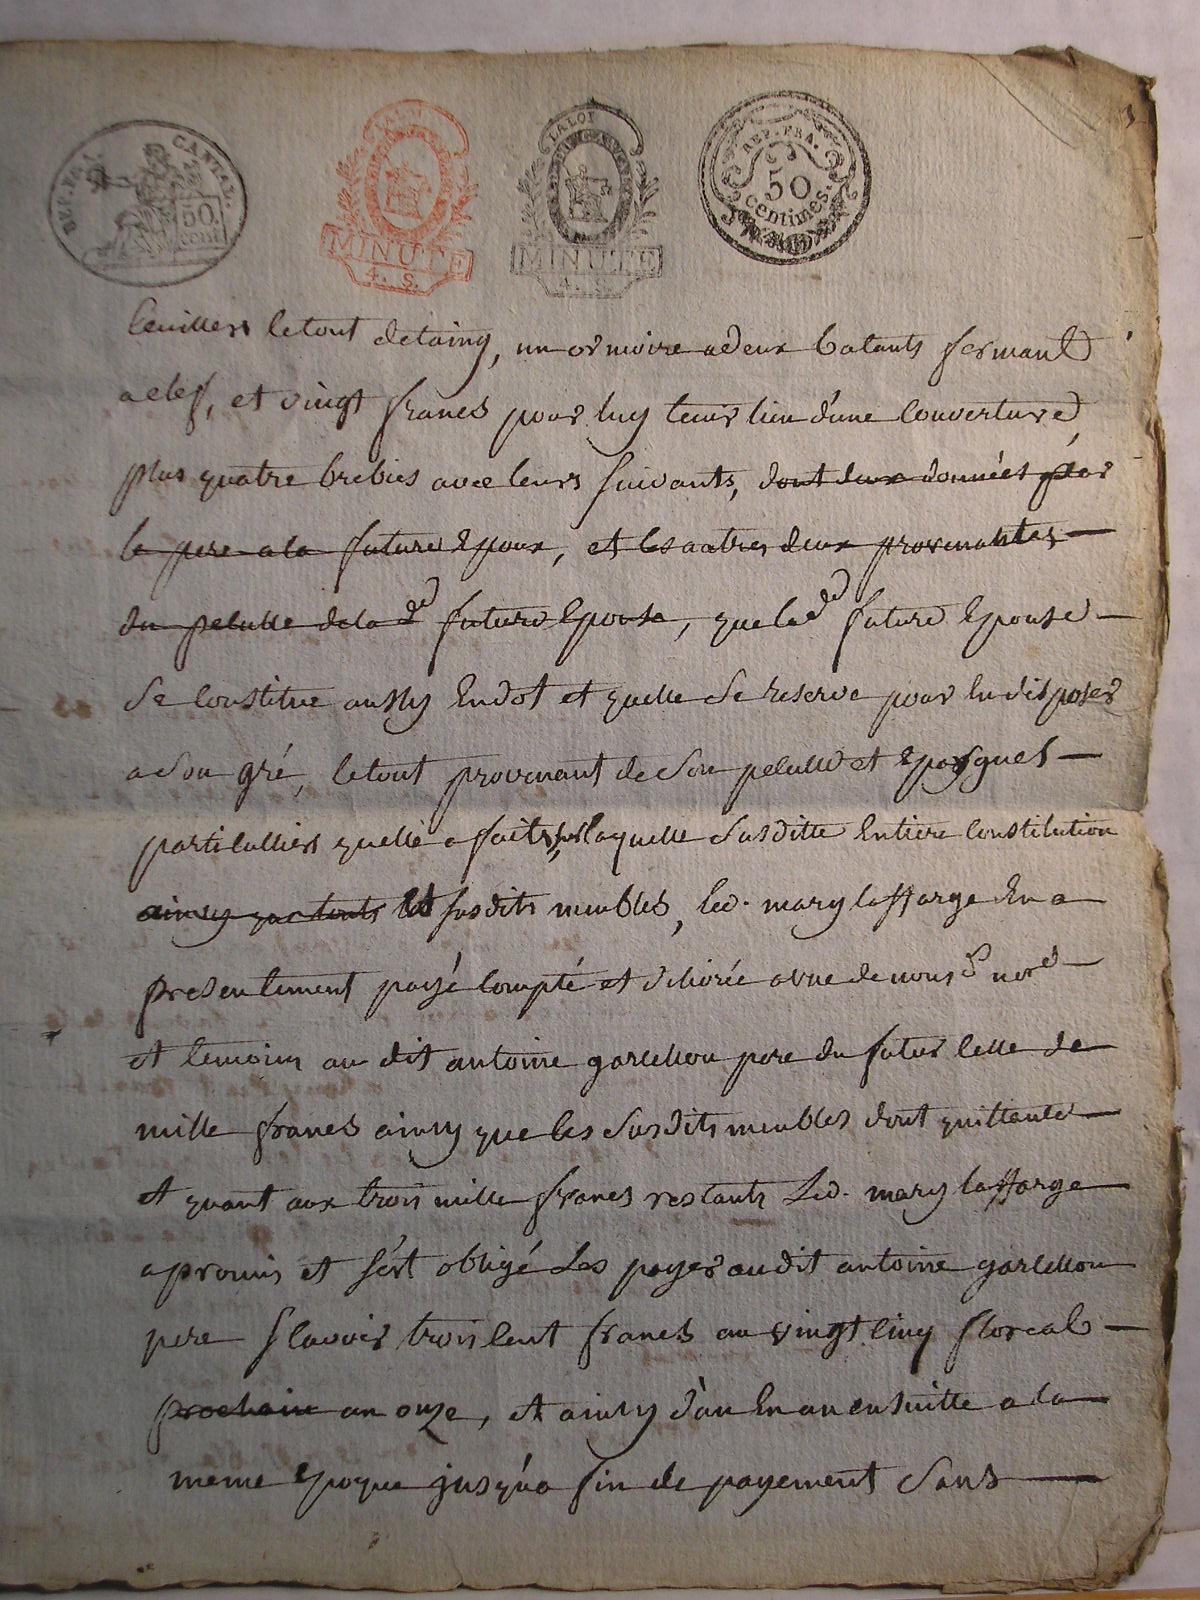 REP. FRA. CANTAL.
50 cent
LA LOI
MINUTE
4. S.
LA LOI
MINUTE
4. S.
REP. FRA.
50
centimes.
Cuillers le tout detaing, un ormoire a deux batants fermant
a clef, et vingt francs pour luy tenir lieu d'une Couverture,
plus quatre brebies avec leurs suivants, dont deux données par
le pere a la future Epoux, et les autres deux provenantes
du peculle de la de future Epouse, que lade future Epouse
Se Constitue aussy En dot et quelle Se reserve pour En disposer
a Son gré, le tout provenant de Son peculle et Epargnes
particulliers quelle a faits, laquelle Susditte Entiere Constitution
ainsy que touts les susdits meubles, led. mary laffarge En a
presentement payé Compté et délivrée a vue de nous d. nore
et temoins au dit antoine garcellou pere du futur Celle de
mille francs ainsy que les Susdits meubles dont quittance
et quant aux trois mille francs restants Led. mary laffarge
a promis et s'est obligé Les payer audit antoine garcellou
pere Scavoir trois Cent francs au vingt Cinq floreal
prochain an onze, et ainsy d'an En an ensuitte a la
meme Epoque jusqu'a fin de payement Sans